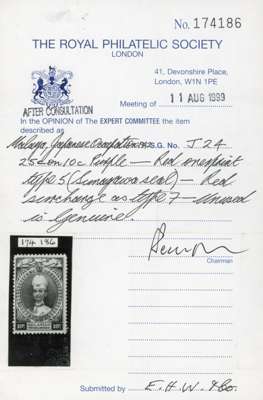 No. 174186
THE ROYAL PHILATELIC SOCIETY
LONDON
41, Devonshire Place,
London, W1N 1PE
Meeting of 11 AUG 1999
AFTER CONSULTATION
In the OPINION of The EXPERT COMMITTEE the item
described as
Malaya, Japanese Occupation S.G. No. J 24
25c on 10c Purple — Red overprint
type 5 (Sunagawa seal) — Red
surcharge as type 7 — unused
is genuine.
Chairman
174 186
Submitted by E.H.W. & Co.